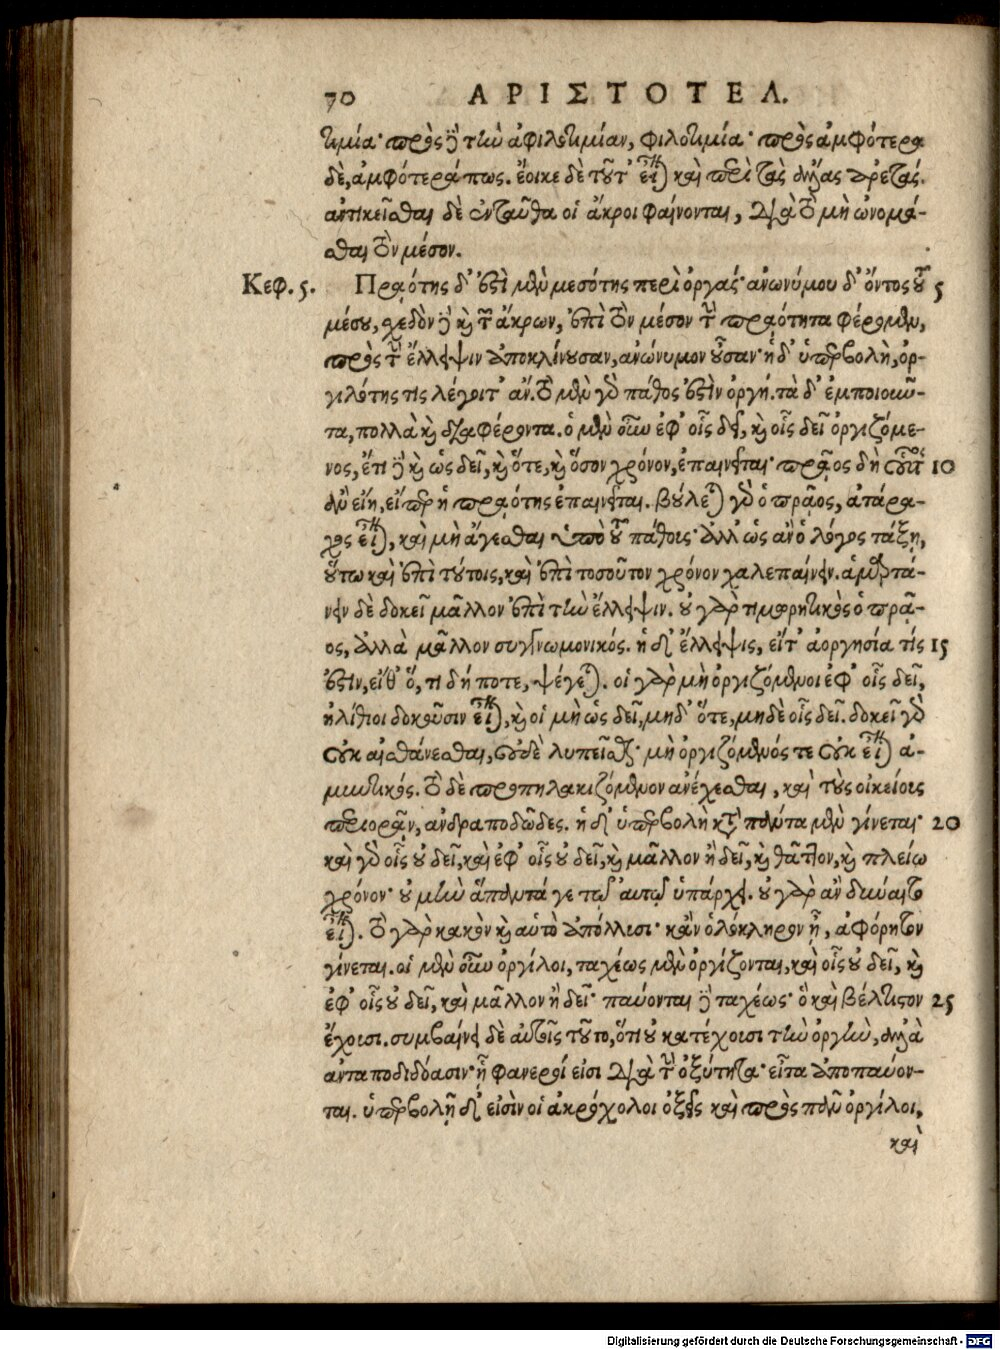 70 ΑΡΙΣΤΟΤΕΛ.
τιμία· πρὸς δὲ τὴν ἀφιλοτιμίαν, φιλοτιμία· πρὸς ἀμφότερα
δὲ, ἀμφότερά πως. ἔοικε δὲ τοῦτ' εἶναι καὶ περὶ τὰς ἄλλας ἀρετάς.
ἀντικεῖσθαι δὲ ἐνταῦθα οἱ ἄκροι φαίνονται, διὰ τὸ μὴ ὠνομά-
σθαι τὸν μέσον.
Κεφ. 5. Πραότης δ' ἐστὶ μὲν μεσότης περὶ ὀργάς· ἀνωνύμου δ' ὄντος τοῦ 5
μέσου, σχεδὸν δὲ καὶ τῶν ἄκρων, ἐπὶ τὸν μέσον τὴν πραότητα φέρομεν,
πρὸς τὴν ἔλλειψιν ἀποκλίνουσαν, ἀνώνυμον οὖσαν· ἡ δ' ὑπερβολὴ, ὀρ-
γιλότης τις λέγοιτ' ἄν. τὸ μὲν γὰρ πάθος ἐστὶν ὀργή. τὰ δ' ἐμποιοῦν-
τα, πολλὰ καὶ διαφέροντα. ὁ μὲν οὖν ἐφ' οἷς δεῖ, καὶ οἷς δεῖ ὀργιζόμε-
νος, ἔτι δὲ καὶ ὡς δεῖ, καὶ ὅτε, καὶ ὅσον χρόνον, ἐπαινεῖται· πρᾶος δὴ οὗτος 10
ἂν εἴη, εἴπερ ἡ πραότης ἐπαινεῖται. βούλεται γὰρ ὁ πρᾶος, ἀτάρα-
χος εἶναι, καὶ μὴ ἄγεσθαι ὑπὸ τοῦ πάθους· ἀλλ' ὡς ἂν ὁ λόγος τάξῃ,
οὕτω καὶ ἐπὶ τούτοις, καὶ ἐπὶ τοσοῦτον χρόνον χαλεπαίνειν. ἁμαρτά-
νειν δὲ δοκεῖ μᾶλλον ἐπὶ τὴν ἔλλειψιν. οὐ γὰρ τιμωρητικὸς ὁ πρᾶ-
ος, ἀλλὰ μᾶλλον συγγνωμονικός. ἡ δ' ἔλλειψις, εἴτ' ἀοργησία τίς 15
ἐστιν, εἴθ' ὅ, τι δή ποτε, ψέγεται. οἱ γὰρ μὴ ὀργιζόμενοι ἐφ' οἷς δεῖ,
ἠλίθιοι δοκοῦσιν εἶναι, καὶ οἱ μὴ ὡς δεῖ, μηδ' ὅτε, μηδὲ οἷς δεῖ. δοκεῖ γὰρ
οὐκ αἰσθάνεσθαι, οὐδὲ λυπεῖσθαι· μὴ ὀργιζόμενός τε οὐκ εἶναι ἀ-
μυντικός. τὸ δὲ προπηλακιζόμενον ἀνέχεσθαι, καὶ τοὺς οἰκείους
περιορᾶν, ἀνδραποδῶδες. ἡ δ' ὑπερβολὴ κατὰ πάντα μὲν γίνεται· 20
καὶ γὰρ οἷς οὐ δεῖ, καὶ ἐφ' οἷς οὐ δεῖ, καὶ μᾶλλον ἢ δεῖ, καὶ θᾶττον, καὶ πλείω
χρόνον· οὐ μὴν ἅπαντά γε τῷ αὐτῷ ὑπάρχει. οὐ γὰρ ἂν δύναιτο
εἶναι. τὸ γὰρ κακὸν καὶ αὑτὸ ἀπόλλυσι· κἂν ὁλόκληρον ᾖ, ἀφόρητον
γίνεται. οἱ μὲν οὖν ὀργίλοι, ταχέως μὲν ὀργίζονται, καὶ οἷς οὐ δεῖ, καὶ
ἐφ' οἷς οὐ δεῖ, καὶ μᾶλλον ἢ δεῖ· παύονται δὲ ταχέως· ὃ καὶ βέλτιστον 25
ἔχουσι. συμβαίνει δὲ αὐτοῖς τοῦτο, ὅτι οὐ κατέχουσι τὴν ὀργὴν, ἀλλὰ
ἀνταποδιδόασιν· ᾗ φανεροί εἰσι διὰ τὴν ὀξύτητα· εἶτα ἀποπαύον-
ται. ὑπερβολῇ δ' εἰσὶν οἱ ἀκρόχολοι ὀξεῖς καὶ πρὸς πᾶν ὀργίλοι,
καὶ
Digitalisierung gefördert durch die Deutsche Forschungsgemeinschaft - DFG